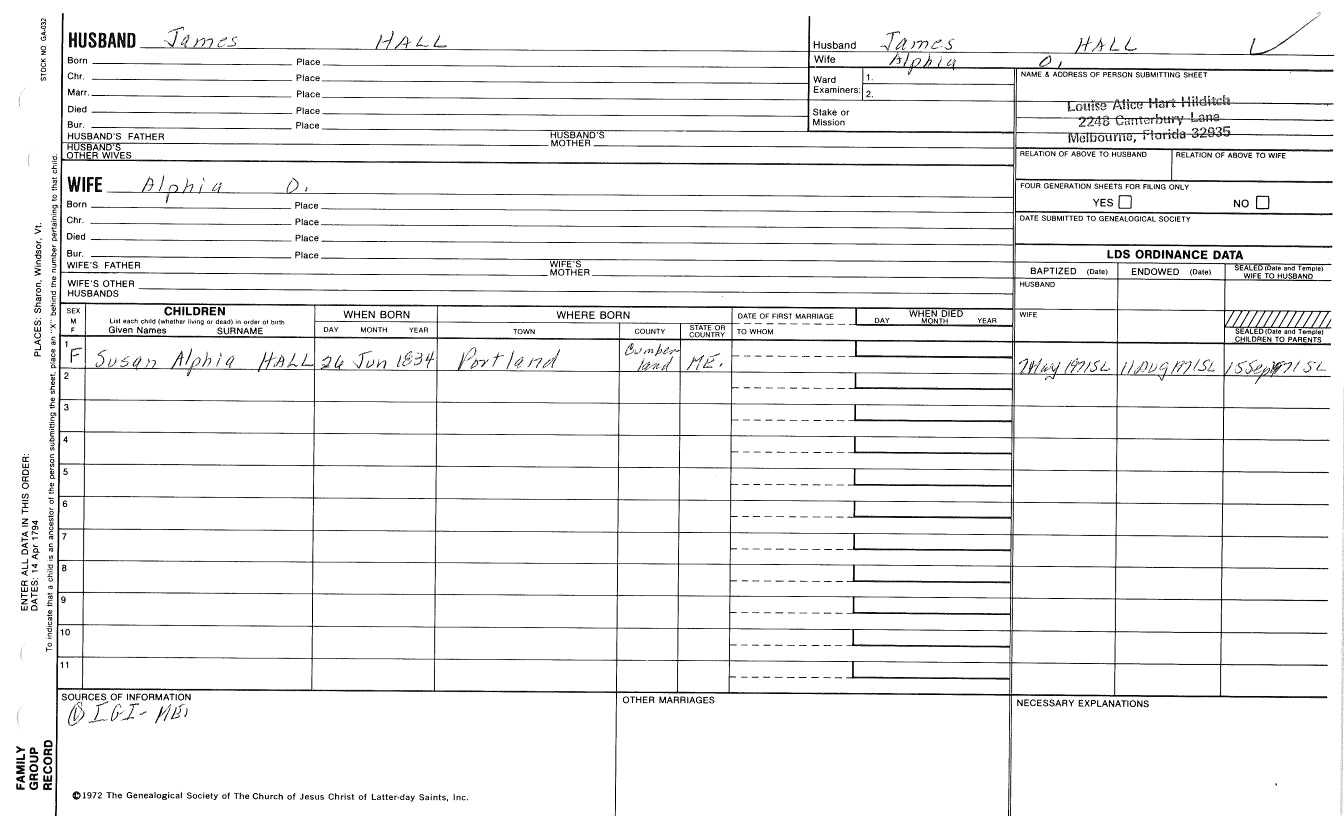 STOCK NO GA-032
HUSBAND James HALL
Born Place
Chr. Place
Marr. Place
Died Place
Bur. Place
HUSBAND'S FATHER HUSBAND'S MOTHER
HUSBAND'S OTHER WIVES
Husband James HALL
Wife Alphia O.
Ward Examiners: 1.
2.
Stake or Mission
NAME & ADDRESS OF PERSON SUBMITTING SHEET
Louise Alice Hart Hilditch
2248 Canterbury Lane
Melbourne, Florida 32935
RELATION OF ABOVE TO HUSBAND RELATION OF ABOVE TO WIFE
FOUR GENERATION SHEETS FOR FILING ONLY
YES NO
DATE SUBMITTED TO GENEALOGICAL SOCIETY
WIFE Alphia O.
Born Place
Chr. Place
Died Place
Bur. Place
WIFE'S FATHER WIFE'S MOTHER
WIFE'S OTHER HUSBANDS
LDS ORDINANCE DATA
BAPTIZED (Date) ENDOWED (Date) SEALED (Date and Temple) WIFE TO HUSBAND
HUSBAND
WIFE
SEALED (Date and Temple) CHILDREN TO PARENTS
SEX M F
CHILDREN
List each child (whether living or dead) in order of birth
Given Names SURNAME
WHEN BORN
DAY MONTH YEAR
WHERE BORN
TOWN COUNTY STATE OR COUNTRY
DATE OF FIRST MARRIAGE
TO WHOM
WHEN DIED
DAY MONTH YEAR
1 F Susan Alphia HALL 26 Jun 1834 Portland Cumberland ME. 7 May 1971 SL 11 Aug 1971 SL 15 Sep 1971 SL
2
3
4
5
6
7
8
9
10
11
SOURCES OF INFORMATION
① IGI- ME.
OTHER MARRIAGES
NECESSARY EXPLANATIONS
©1972 The Genealogical Society of The Church of Jesus Christ of Latter-day Saints, Inc.
PLACES: Sharon, Windsor, Vt.
ENTER ALL DATA IN THIS ORDER:
DATES: 14 Apr 1794
To indicate that a child is an ancestor of the person submitting the sheet, place an "X" behind the number pertaining to that child.
FAMILY GROUP RECORD